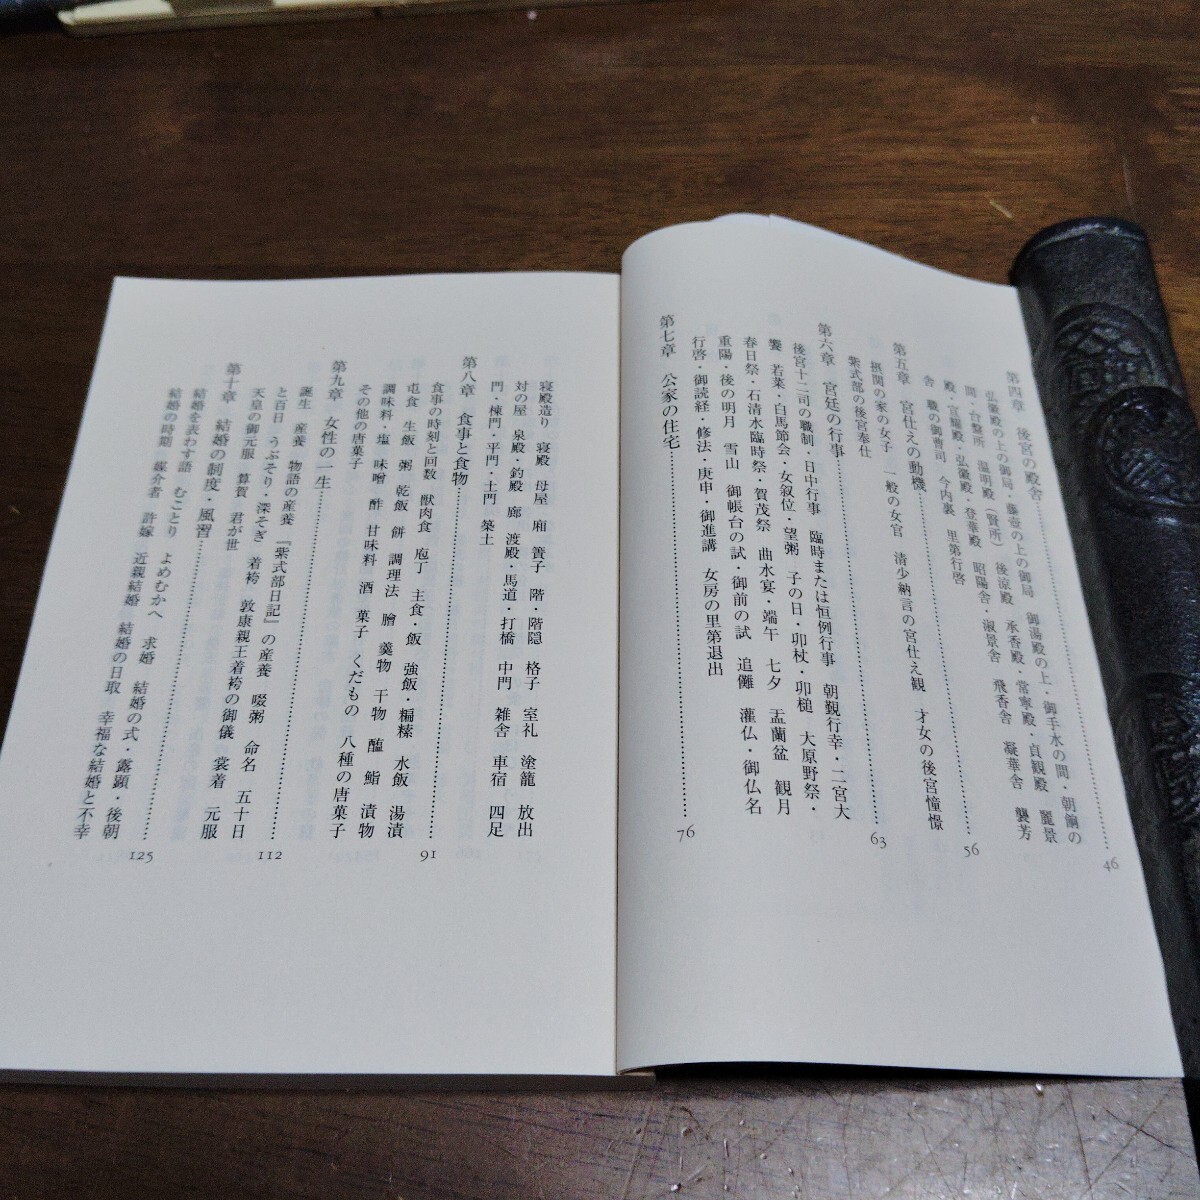 第四章　後宮の殿舎……46
弘徽殿の上の御局・藤壺の上の御局　御湯殿の上・御手水の間・朝餉の
間・台盤所　温明殿（賢所）　後涼殿　承香殿・常寧殿・貞観殿　麗景
殿・宣耀殿・弘徽殿・登華殿　昭陽舎・淑景舎　飛香舎　凝華舎　襲芳
舎　職の御曹司　今内裏　里第行啓
第五章　宮仕えの動機……56
摂関の家の女子　一般の女官　清少納言の宮仕え観　才女の後宮憧憬
紫式部の後宮奉仕
第六章　宮廷の行事……63
後宮十二司の職制・日中行事　臨時または恒例行事　朝覲行幸・二宮大
饗　若菜・白馬節会・女叙位・望粥　子の日・卯杖・卯槌　大原野祭・
春日祭・石清水臨時祭・賀茂祭　曲水宴・端午　七夕　盂蘭盆　観月
重陽・後の明月　雪山　御帳台の試・御前の試　追儺　灌仏・御仏名
行啓・御読経・修法・庚申・御進講　女房の里第退出
第七章　公家の住宅……76
寝殿造り　寝殿　母屋　廂　簀子　階・階隠　格子　室礼　塗籠　放出
対の屋　泉殿・釣殿　廊　渡殿・馬道・打橋　中門　雑舎　車宿　四足
門・棟門・平門・土門　築土
第八章　食事と食物……91
食事の時刻と回数　獣肉食　庖丁　主食・飯　強飯・糄𥻨　水飯　湯漬
屯食　生飯　粥　乾飯　餅　調理法　膾　羹物　干物　醢　鮨　漬物
調味料・塩　味噌　酢　甘味料　酒　菓子　くだもの　八種の唐菓子
その他の唐菓子
第九章　女性の一生……112
誕生　産養　物語の産養　『紫式部日記』の産養　啜粥　命名　五十日
と百日　うぶそり・深そぎ　着袴　敦康親王着袴の御儀　裳着　元服
天皇の御元服　算賀　君が世
第十章　結婚の制度・風習……125
結婚を表わす語　むことり　よめむかへ　求婚　結婚の式・露顕・後朝
結婚の時期　媒介者　許嫁　近親結婚　結婚の日取　幸福な結婚と不幸